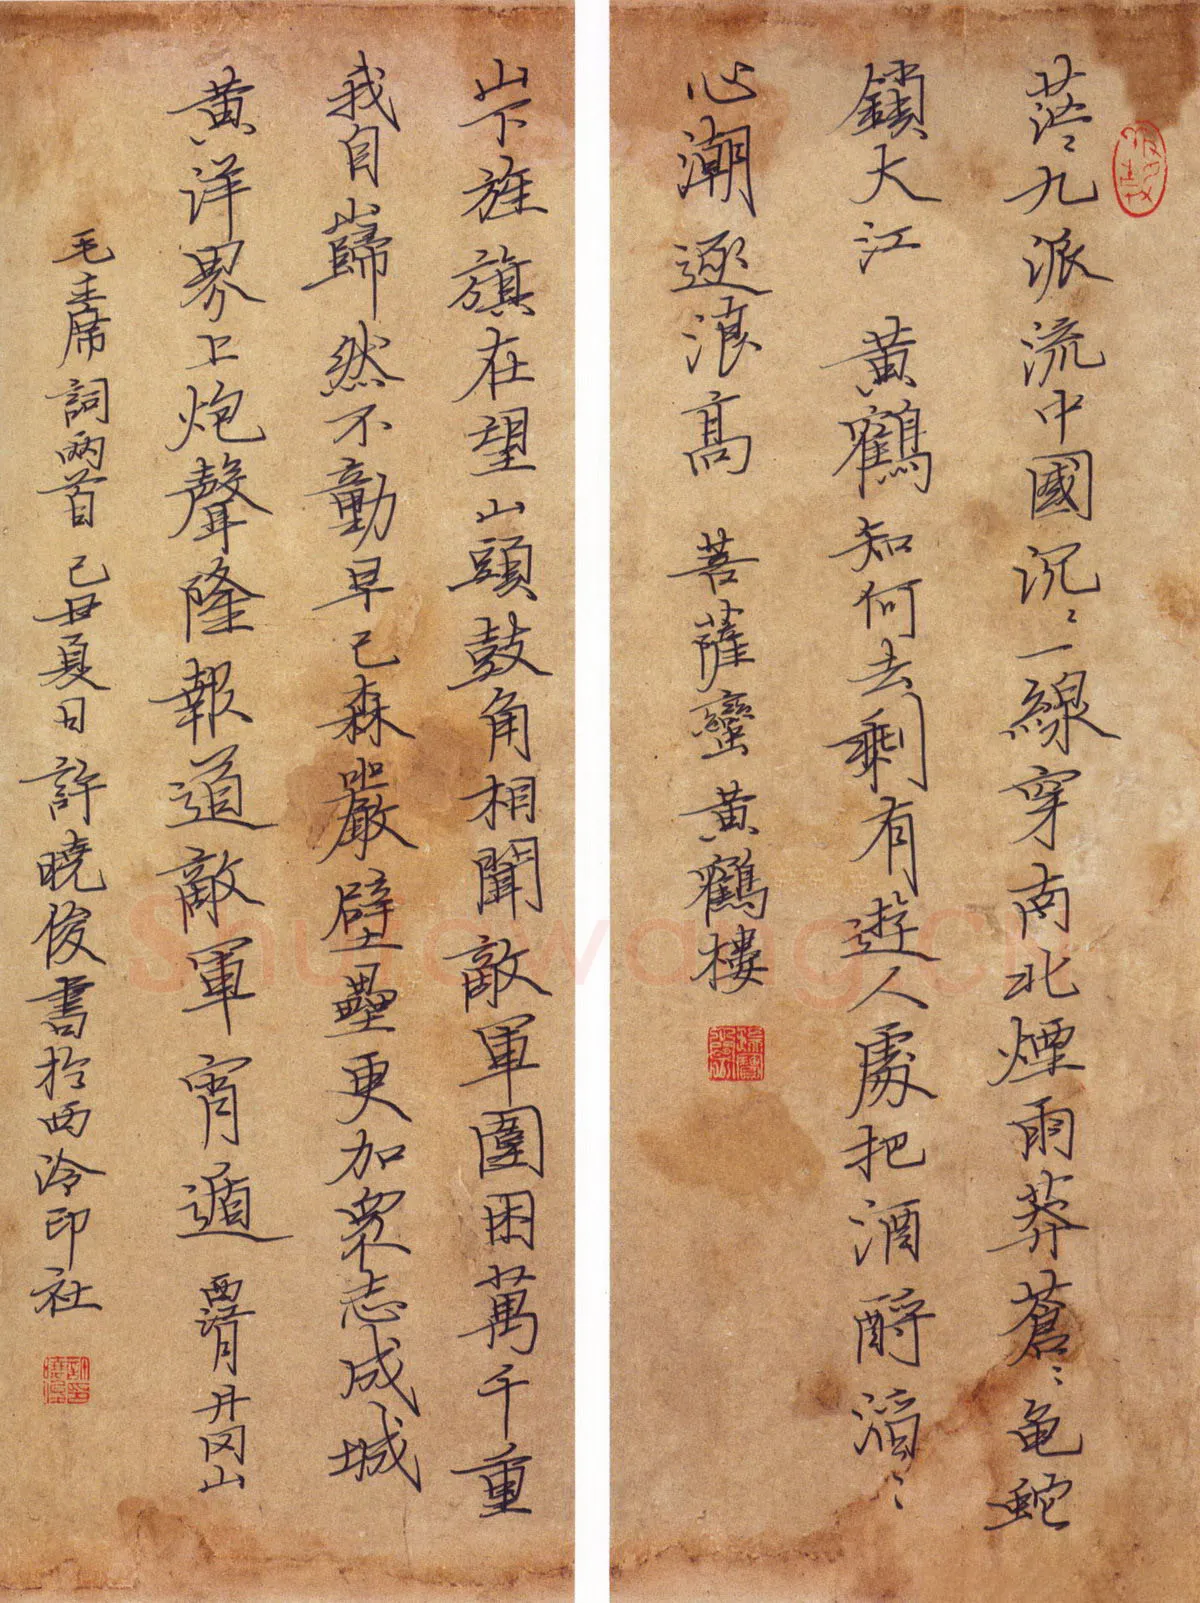 茫〻九派流中國沉〻一線穿南北煙雨莽蒼〻龟蛇
鎖大江 黃鶴知何去剩有遊人處把酒酹滔〻
心潮逐浪高 菩薩蠻 黃鶴樓
山下旌旗在望山頭鼓角相聞敵軍圍困萬千重
我自巋然不動早已森嚴壁壘更加眾志成城
黃洋界上炮聲隆報道敵軍宵遁 西江月 井冈山
毛主席詞兩首 己丑夏日許曉俊書於西泠印社
Shufawang.cn